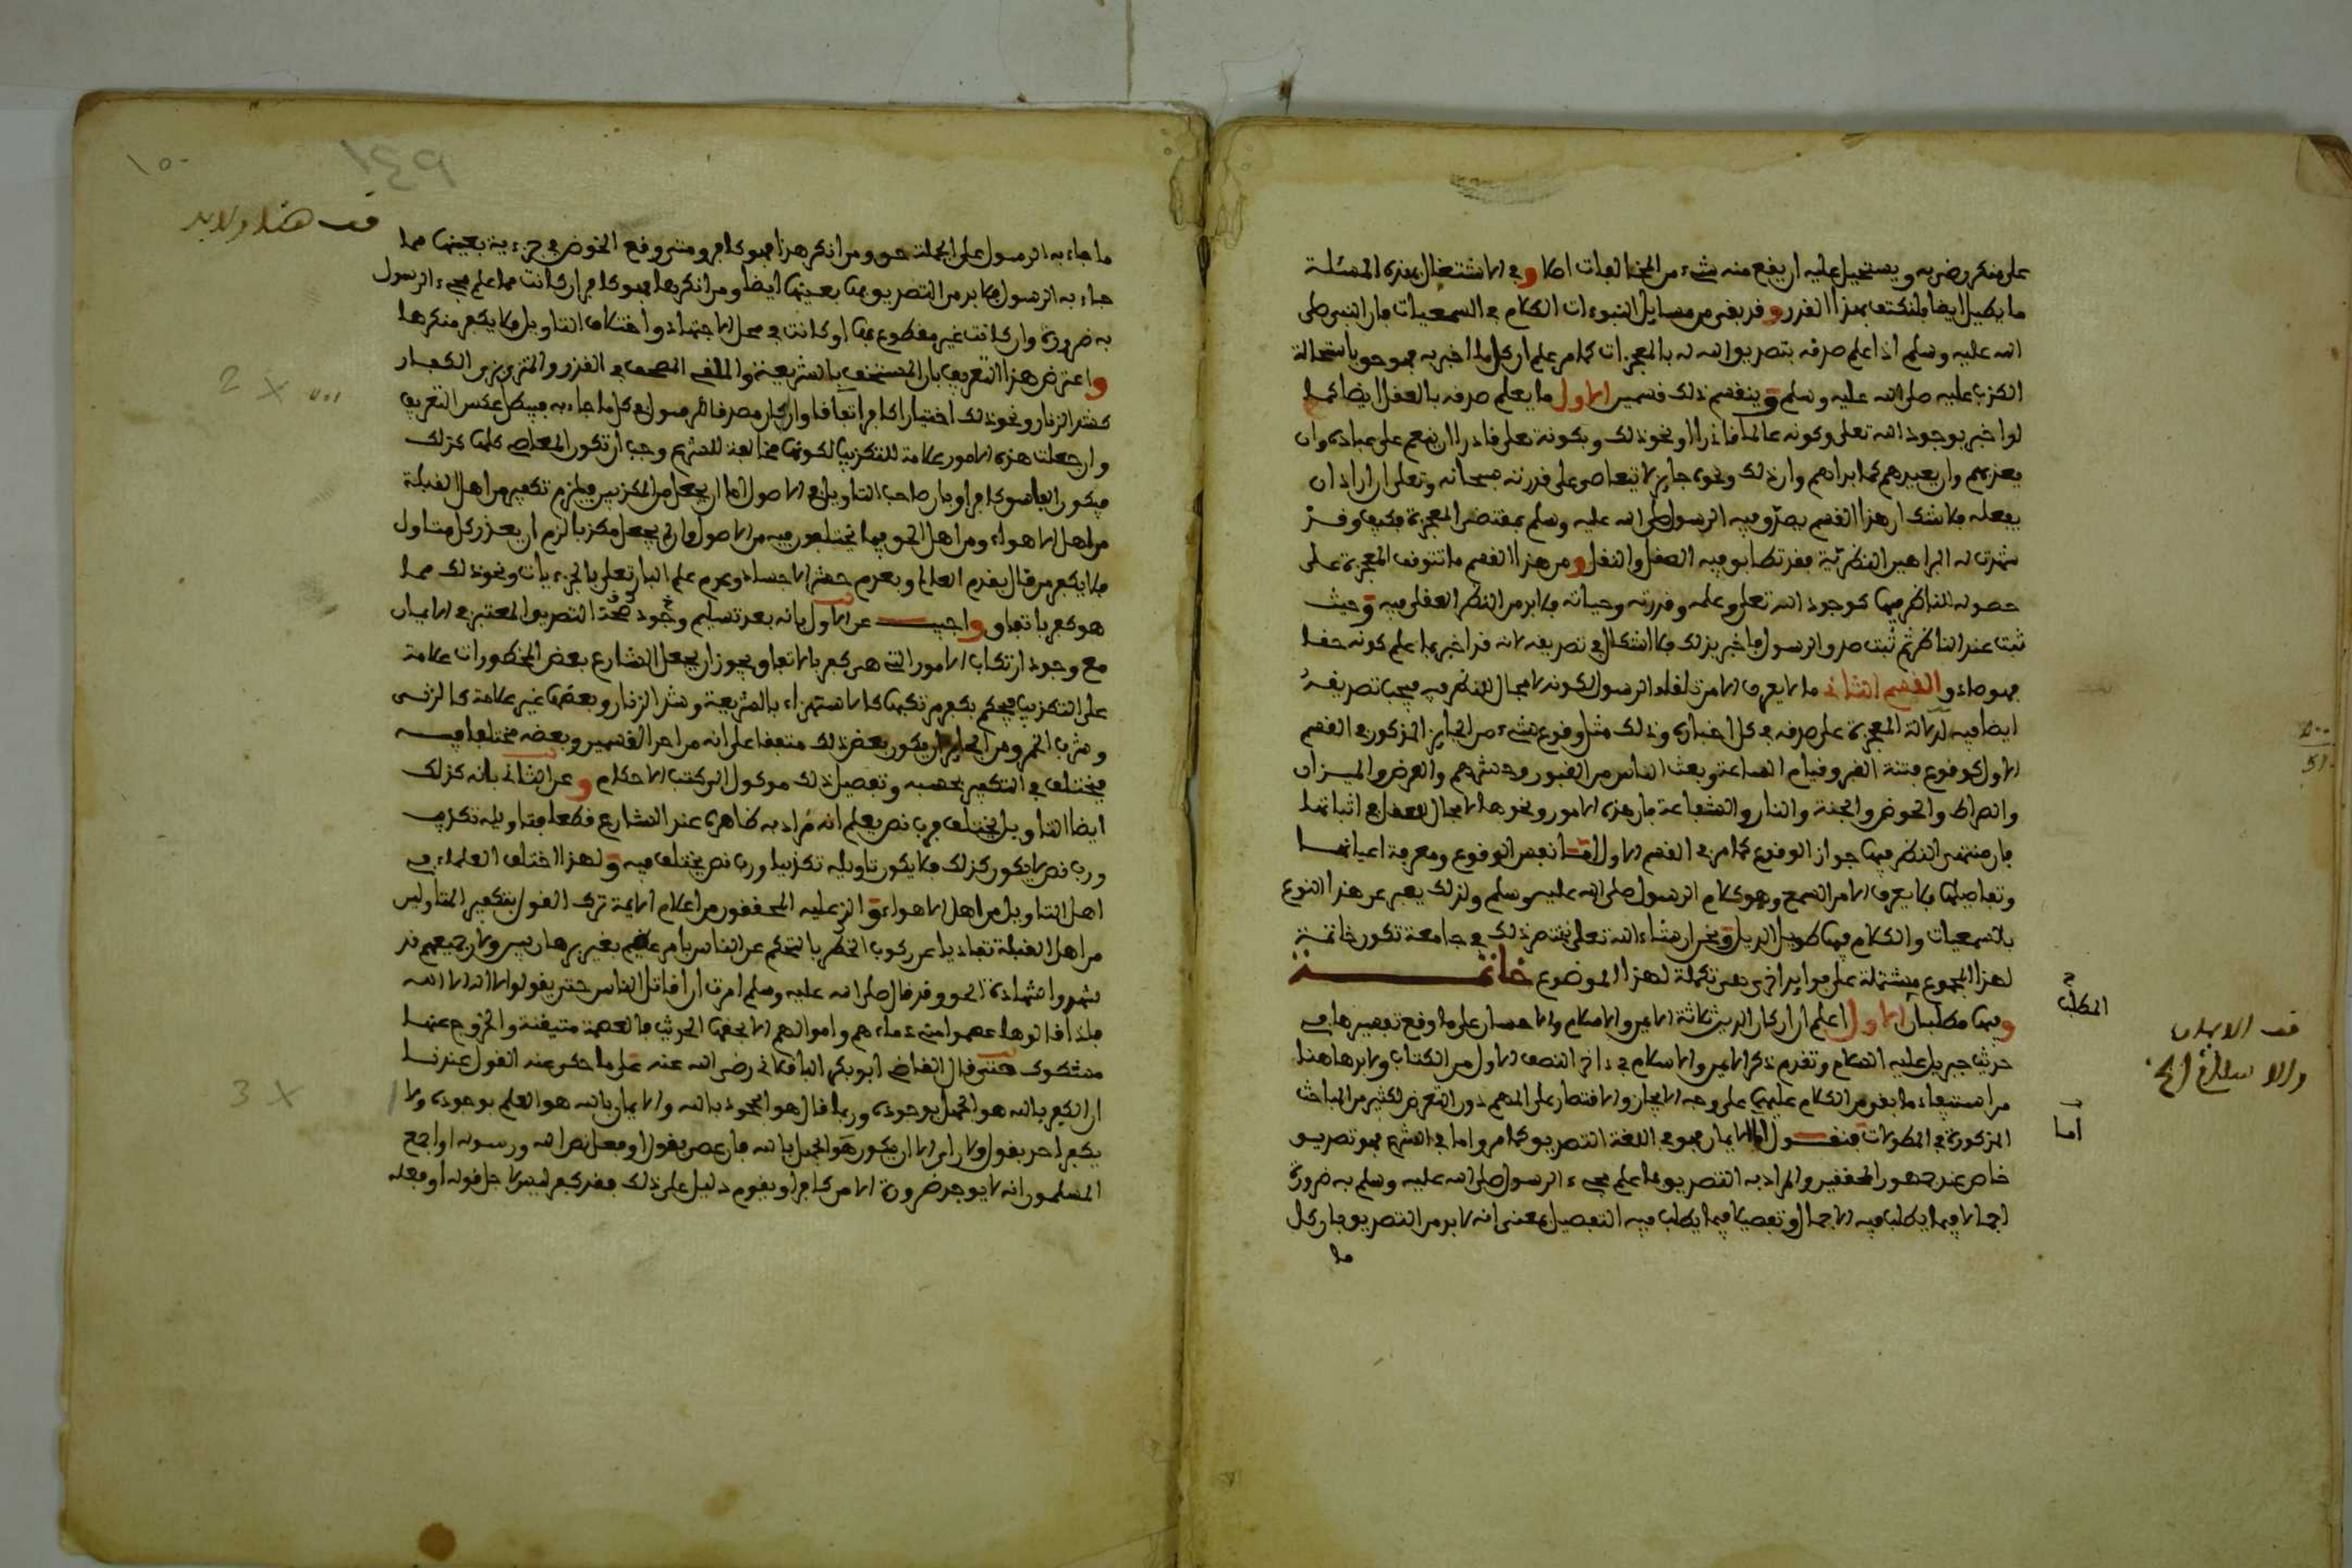 على منكر رضي به ويستحيل عليه ان يقع منه شيء من المخالفات اصلا وفي الاشتغال بهذه المسئلة
ما يطيل ايضا فلنكتف بهذا القدر وقد بقي من مسايل النبوءات الكلام في السمعيات فان النبي صلى
الله عليه وسلم اذا علم صدقه بتصديق الله له بالمعجزات كما مر علم ان كل ما اخبر به فهو حق لاستحالة
الكذب عليه صلى الله عليه وسلم وينقسم ذلك قسمين الاول ما يعلم صدقه بالعقل ايضا كما
لو اخبر بوجود الله تعلى وكونه عالما قادرا ونحو ذلك وبكونه تعلى قادرا ان ينعم على عباده وان
يعذبهم وان يعيدهم كما بدأهم وان ذلك ونحوه جايز لا يتعاصى على قدرته سبحانه وتعلى ان اراد ان
يفعله فلا شك ان هذا القسم يصدق فيه الرسول صلى الله عليه وسلم بمقتضى المعجزة فكيف وقد
شهدت له البراهين النظرية فقد تطابق فيه العقل والنقل ومن هذا القسم ما تتوقف المعجزة على
حصوله للناظر فيها كوجود الله تعلى وعلمه وقدرته وحياته فلا بد من النظر العقلي فيه وحيث
ثبت عند الناظر ثم ثبت صدق الرسول فاخبر بذلك فلا اشكال في تصديقه لانه قد اخبر بما علم كونه حقا
فهو صادق القسم الثاني ما لا يعرف الا من تلقاء الرسول لكونه لا مجال للنظر فيه فيجب تصديقه
ايضا فيه لدلالة المعجزة على صدقه في كل اخباره وذلك مثل وقوع شيء من الجايز المذكور في القسم
الاول كوقوع فتنة القبر وقيام الساعة وبعث الناس من القبور وحشرهم والعرض والميزان
والصراط والحوض والجنة والنار والشفاعة فان هذه الامور ونحوها لا مجال للعقل في اثباتها
فان منتهى النظر فيها جواز الوقوع كما مر في القسم الاول اما نفس الوقوع ومعرفة اعيانها
وتفاصيلها فلا يعرف الا من السمع وهو كلام الرسول صلى الله عليه وسلم ولذلك يعبر عن هذا النوع
بالسمعيات والكلام فيها طويل الذيل ونحن ان شاء الله تعلى نختصر ذلك في جامعة تكون خاتمة
لهذا المجموع مشتملة على فوايد اخرى هي تكملة لهذا الموضوع خاتمة
وفيها مطلبان الاول اعلم ان اركان الدين ثلاثة الايمن والاسلام والاحسان على ما وقع تفسيرها في
حديث جبريل عليه السلام وتقدم ذكر الايمن والاسلام في ءاخر النصف الاول من الكتاب ولا بد هاهنا
من استيفاء ما بقي من الكلام عليهما على وجه الايجاز والاقتصار على المهم دون التعرض لكثير من المباحث
المذكورة في المطولات فنقول اما الايمان فهو في اللغة التصديق كما مر واما في الشرع فهو تصديق
خاص عند جمهور المحققين والمراد به التصديق بما علم مجيء الرسول صلى الله عليه وسلم به ضرورة
اجمالا فيما يطلب فيه الاجمال وتفصيلا فيما يطلب فيه التفصيل بمعنى انه لا بد من التصديق بان كل
ما
المطلب
اما
قف الايمان
والاسلام الخ
قف هنا ولا بد
١٥٠
ما جاء به الرسول على الجملة حق ومن انكر هذا فهو كافر ومتى وقع الخوض في جزءية بعينها مما
جاء به الرسول فلا بد من التصديق بها بعينها ايضا ومن انكرها فهو كافر ان كانت مما علم مجيء الرسول
به ضرورة وان كانت غير مقطوع بها او كانت في محل الاجتهاد واختلاف التاويل فلا يكفر منكرها
واعترض هذا التعريف بان المستخف بالشريعة والملقي المصحف في القذر والمتزيي بزي الكفار
كشد الزنار ونحو ذلك اختيارا كافر اتفاقا وان كان مصدقا للرسول في كل ما جاء به فيبطل عكس التعريف
وان جعلت هذه الامور علامة للتكذيب لكونها مخالفة للشرع وجب ان تكون المعاصي كلها كذلك
فيكون الفاسق كافرا وبان صاحب التاويل في الاصول اما ان يجعل من المكذبين فيلزم تكفير من اهل القبلة
من اهل الاهواء ومن اهل الحق فيما يختلفون فيه من الاصول وان لم يجعل مكذبا لزم ان يعذر كل متاول
فلا يكفر من قال بقدم العالم وبعدم حشر الاجساد وعدم علم البار تعلى بالجزءيات ونحو ذلك مما
هو كفر باتفاق واجيب عن الاول بانه بعد تسليم وجود صحة التصديق المعتبر في الايمان
مع وجود ارتكاب الامور التي هي كفر بالاتفاق يجوز ان يجعل الشارع بعض المحظورات علامة
على التكذيب فيحكم بكفر مرتكبها كالاستهزاء بالشريعة وشد الزنار وبعضها غير علامة كالزنى
وشرب الخمر ومن الجايز ان يكون بعض ذلك متفقا على انه من احد القسمين وبعضه مختلفا فيه
فيختلف في التكفير بحسبه وتفصيل ذلك موكول الى كتب الاحكام وعن الثاني بانه كذلك
ايضا التاويل يختلف فرب نص يعلم انه مراد به ظاهره عند الشارع قطعا فتاويله تكذيب
ورب نص لا يكون كذلك فلا يكون تاويله تكذيبا ورب نص يختلف فيه ولهذا اختلف العلماء في
اهل التاويل من اهل الاهواء والذي عليه المحققون من اعلام الايمة ترك القول بتكفير المتاولين
من اهل القبلة تفاديا عن ركوب الخطر بالتحكم على الناس بامر عظيم بغير برهان بين ولان جميعهم قد
شهدوا شهادة الحق وقد قال صلى الله عليه وسلم امرت ان اقاتل الناس حتى يقولوا لا اله الا الله
فاذا قالوها عصموا مني دماءهم واموالهم الا بحقها الحديث فالعصمة متيقنة والخروج عنها
مشكوك حتى قال القاضي ابو بكر الباقلاني رضي الله عنه على ما حكي عنه القول عندنا
ان الكفر بالله هو الجهل بوجوده وربما قال هو الجحود بالله والايمان بالله هو العلم بوجوده ولا
يكفر احد بقول ولا راي الا ان يكون هو الجهل بالله فان عصى بقول او فعل نص الله ورسوله او اجمع
المسلمون انه لا يوجد ضرورة الا من كافر او يقوم دليل على ذلك فقد كفر ليس لاجل قوله او فعله